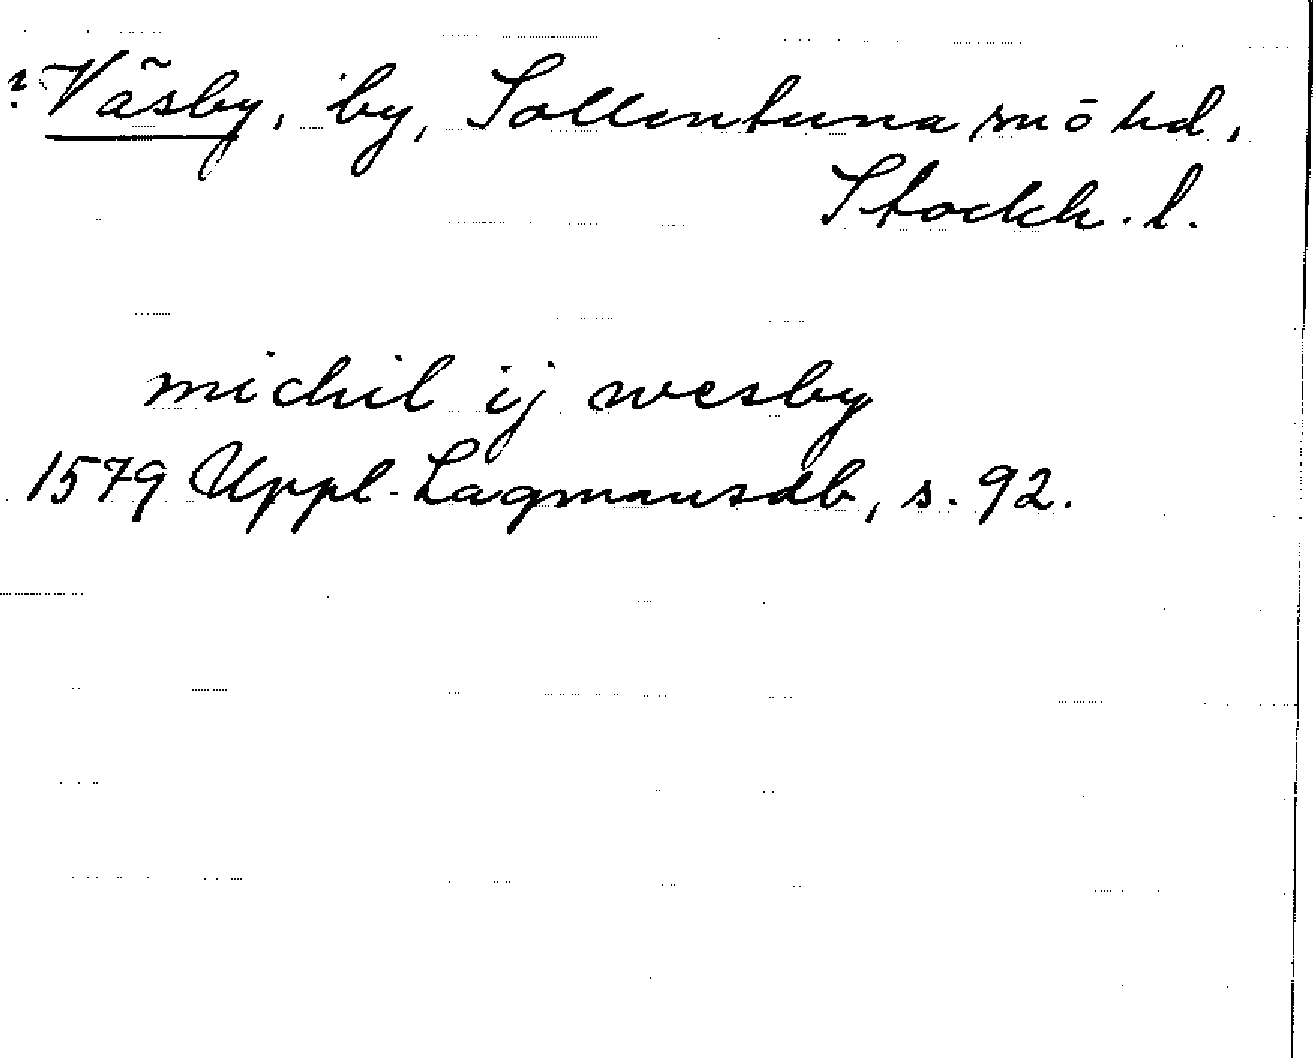 ? Väsby, by, Sollentuna sn ö hd,
Stockh. l.
michil ij wesby
1579 Uppl. Lagmansdb, s. 92.